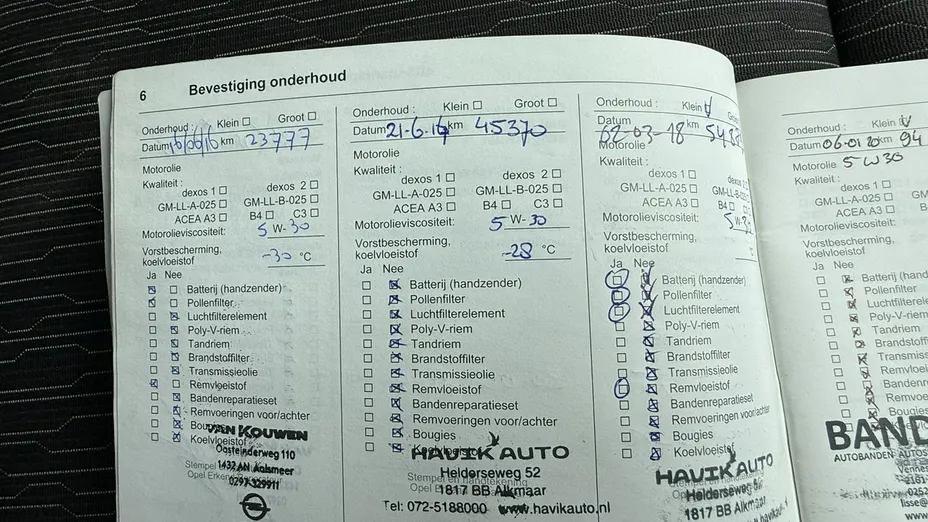 6 Bevestiging onderhoud
Onderhoud: Klein Groot
Datum 16/06/16 km 23777
Motorolie
Kwaliteit:
dexos 1 dexos 2
GM-LL-A-025 GM-LL-B-025
ACEA A3 B4 C3
Motorolieviscositeit: 5 W-30
Vorstbescherming,
koelvloeistof -30 °C
Ja Nee
Batterij (handzender)
Pollenfilter
Luchtfilterelement
Poly-V-riem
Tandriem
Brandstoffilter
Transmissieolie
Remvloeistof
Bandenreparatieset
Remvoeringen voor/achter
Koelvloeistof
VAN KOUWEN
Oosteinderweg 110
1432 AN Aalsmeer
0297-329911
Onderhoud: Klein Groot
Datum 21-6-
km 45370
Motorolie
Kwaliteit:
dexos 1 dexos 2
GM-LL-A-025 GM-LL-B-025
ACEA A3 B4 C3
Motorolieviscositeit: 5 W-30
Vorstbescherming,
koelvloeistof -28 °C
Ja Nee
Batterij (handzender)
Pollenfilter
Luchtfilterelement
Poly-V-riem
Tandriem
Brandstoffilter
Transmissieolie
Remvloeistof
Bandenreparatieset
Remvoeringen voor/achter
Bougies
HAVIK AUTO
Helderseweg 52
1817 BB Alkmaar
Tel: 072-5188000 www.havikauto.nl
Onderhoud: Klein
Datum 03-18 km
Motorolie
Kwaliteit:
dexos 1
GM-LL-A-025
ACEA A3 B4
Motorolieviscositeit:
Vorstbescherming,
koelvloeistof °C
Ja Nee
Batterij (handzender)
Pollenfilter
Luchtfilterelement
Poly-V-riem
Tandriem
Brandstoffilter
Transmissieolie
Remvloeistof
Bandenreparatieset
Remvoeringen voor/achter
Bougies
HAVIK AUTO
Helderseweg
1817 BB Alkmaar
Onderhoud: Klein
Datum 06-01 20 km 94
Motorolie 5W30
Kwaliteit:
dexos 1
GM-LL-A-025
ACEA A3
Motorolieviscositeit:
Vorstbescherming,
koelvloeistof
Ja Nee
Pollenfilter
Luchtfilterelement
Poly-V-riem
Tandriem
BAND